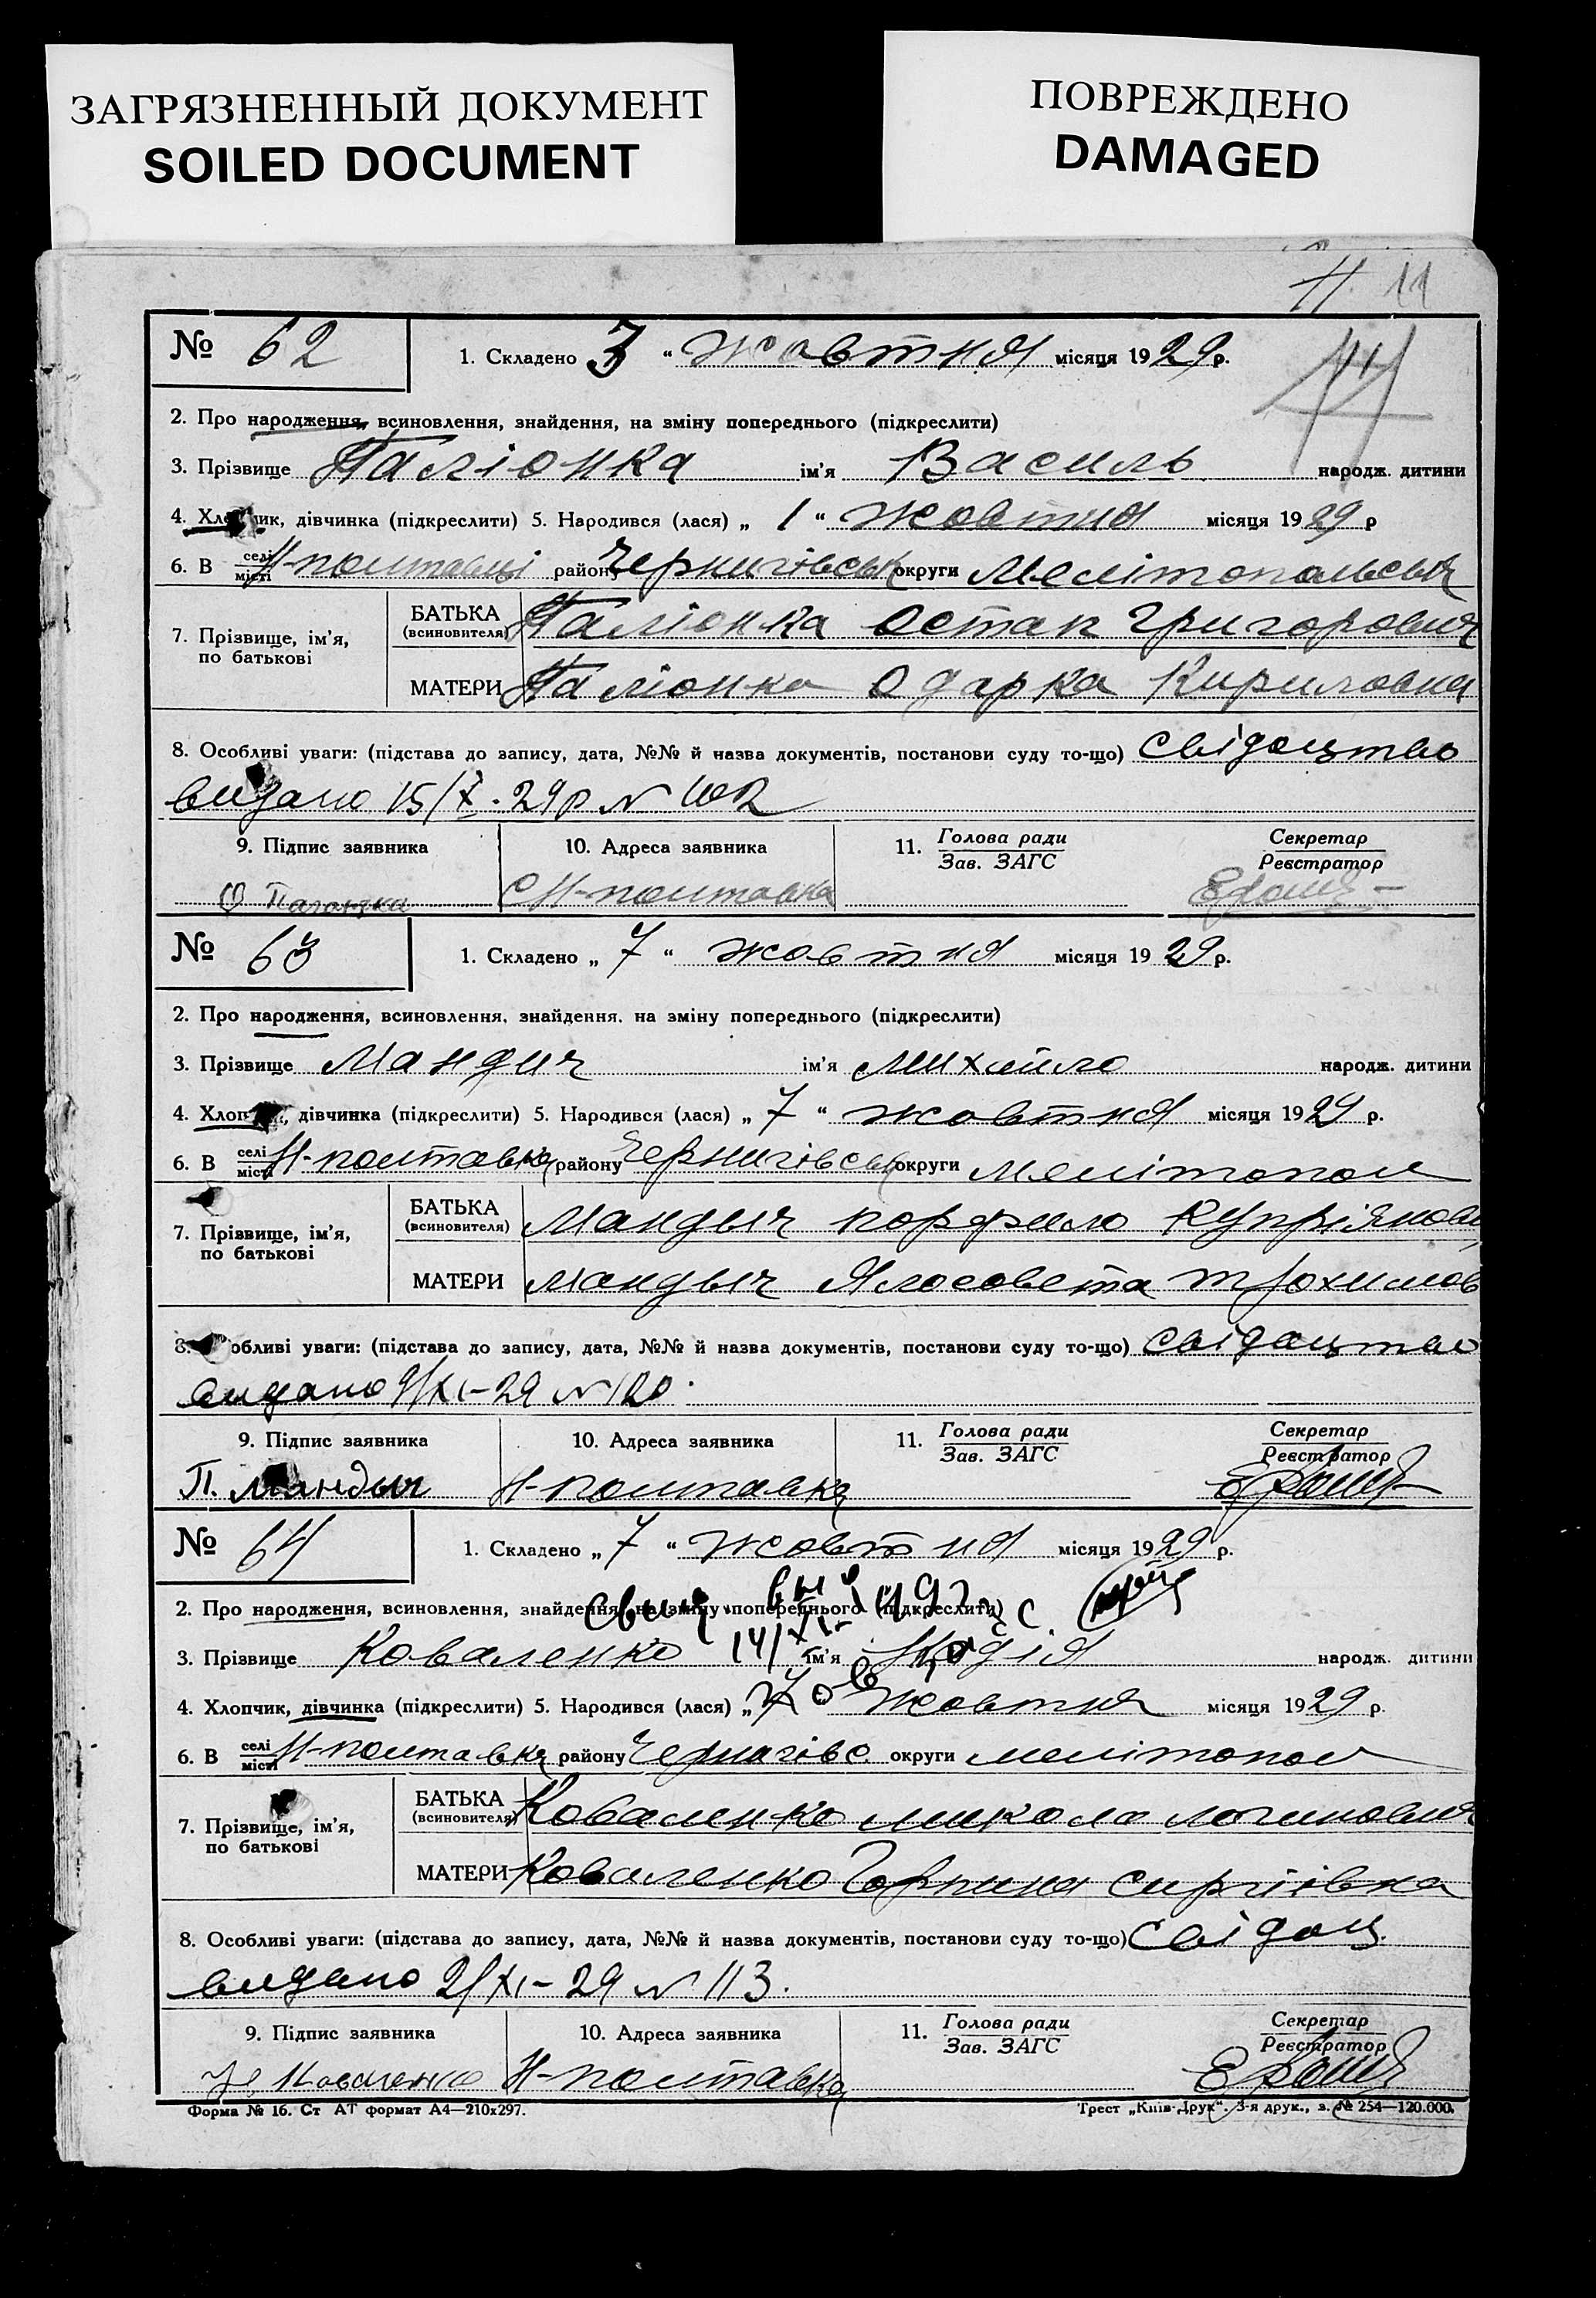 ЗАГРЯЗНЕННЫЙ ДОКУМЕНТ
SOILED DOCUMENT
ПОВРЕЖДЕНО
DAMAGED
11
№ 62
1. Складено 3 “ жовтня місяця 1929р.
2. Про народження, всиновлення, знайдення, на зміну попереднього (підкреслити)
3. Прізвище Паліонка ім'я Василь народж. дитини
4. Хлопчик, дівчинка (підкреслити) 5. Народився (лася) „ 1 “ жовтня місяця 1929 р
6. В селі місті Н-полтавці району Черниговськ округи Мелітопольськ
7. Прізвище, ім'я, по батькові
БАТЬКА (всиновителя) Паліонка Остап Григорович
МАТЕРИ Паліонка Одарка Кириловна
8. Особливі уваги: (підстава до запису, дата, №№ й назва документів, постанови суду то-що) свідоцтво
видано 15/X-29р N 102
9. Підпис заявника
10. Адреса заявника
11. Голова ради
Зав. ЗАГС
Секретар
Реєстратор
С Н-полтавка
№ 63
1. Складено „ 7 “ жовтня місяця 1929р.
2. Про народження, всиновлення, знайдення, на зміну попереднього (підкреслити)
3. Прізвище Мандич ім'я Михайло народж. дитини
4. Хлопчик, дівчинка (підкреслити) 5. Народився (лася) „ 7 “ жовтня місяця 1929 р.
6. В селі місті Н-полтавка району Черниговськ округи Мелітопол
7. Прізвище, ім'я, по батькові
БАТЬКА (всиновителя) Мандыч порфило Купріянови
МАТЕРИ мандыч Ялосовета трохимов
8. Особливі уваги: (підстава до запису, дата, №№ й назва документів, постанови суду то-що) свідоцтво
видано 9/XI-29 N 120.
9. Підпис заявника
10. Адреса заявника
11. Голова ради
Зав. ЗАГС
Секретар
Реєстратор
П. Мандыч
Н-полтавка
№ 64
1. Складено „ 7 “ жовтня місяця 1929 р.
2. Про народження, всиновлення, знайдення, на зміну попереднього (підкреслити)
3. Прізвище Коваленко ім'я Надія народж. дитини
4. Хлопчик, дівчинка (підкреслити) 5. Народився (лася) „ 7 “ жовтня місяця 1929 р.
6. В селі місті Н-полтавка району Чернигівс округи мелітопол
7. Прізвище, ім'я, по батькові
БАТЬКА (всиновителя) Коваленко микола логинович
МАТЕРИ Коваленко Горпина сиргіівна
8. Особливі уваги: (підстава до запису, дата, №№ й назва документів, постанови суду то-що) свідоц
видано 2/XI-29 N 113.
9. Підпис заявника
10. Адреса заявника
11. Голова ради
Зав. ЗАГС
Секретар
Реєстратор
Коваленко
Н-полтавка
Форма № 16. Ст АТ формат А4—210х297.
Трест „Київ-Друк“. 3-я друк., з. № 254—120.000.